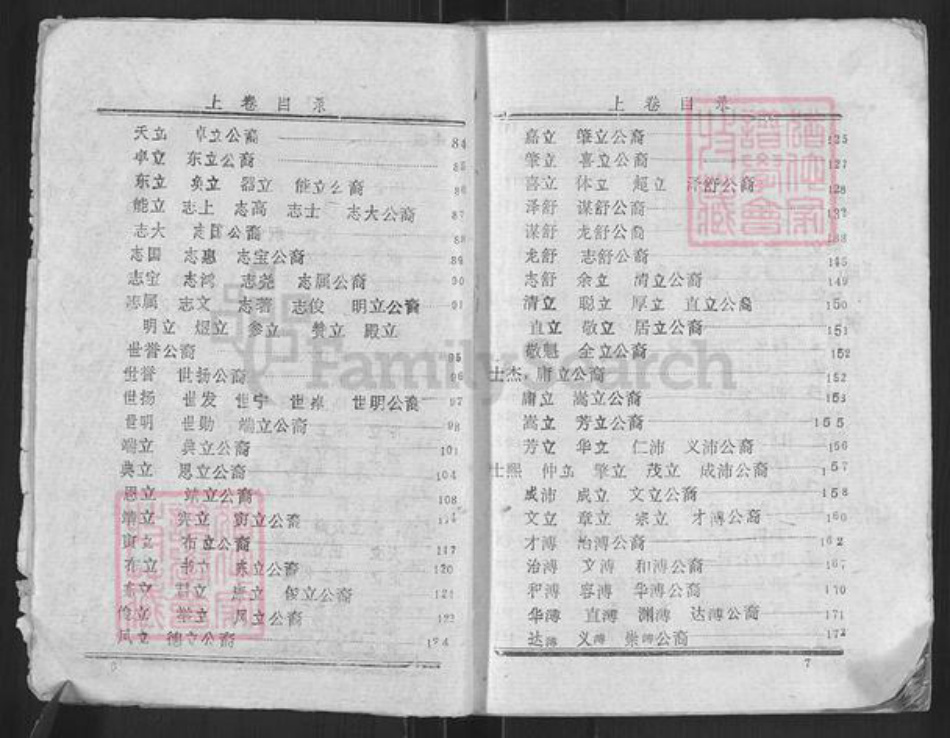 上卷目录
天立 卓立公裔 84
卓立 东立公裔 85
东立 奂立 器立 能立公裔 86
能立 志上 志高 志士 志大公裔 87
志大 志国公裔 88
志国 志惠 志宝公裔 89
志宝 志鸿 志尧 志属公裔 90
志属 志文 志著 志俊 明立公裔 91
明立 煜立 参立 赞立 殿立
世誉公裔 95
世誉 世扬公裔 96
世扬 世发 世宁 世 世明公裔 97
世明 世勋 端立公裔 98
端立 典立公裔 101
典立 思立公裔 104
恩立 靖立公裔 108
靖立 宾立 寅立公裔
寅立 布立公裔 117
布立 立 东立公裔 120
立 君立 唐立 俊立公裔 121
立 立 凤立公裔 123
凤立 德立公裔 124
上卷目录
嘉立 肇立公裔 125
肇立 喜立公裔 127
喜立 体立 超立 泽舒公裔 128
泽舒 谋舒公裔
谋舒 龙舒公裔
龙舒 志舒公裔 145
志舒 余立 清立公裔 149
清立 聪立 厚立 直立公裔 150
直立 敬立 居立公裔 151
敬魁 全立公裔 152
士杰，庸立公裔 152
庸立 嵩立公裔 153
嵩立 芳立公裔 155
芳立 华立 仁沛 义沛公裔 156
士熙 仲立 肇立 茂立 成沛公裔 157
成沛 成立 文立公裔 158
文立 章立 宗立 才溥公裔 160
才溥 治溥公裔 162
治溥 文溥 和溥公裔 167
和溥 容溥 华溥公裔 170
华溥 直溥 渊溥 达溥公裔 171
达溥 义溥 崇溥公裔 172
7
FamilySearch